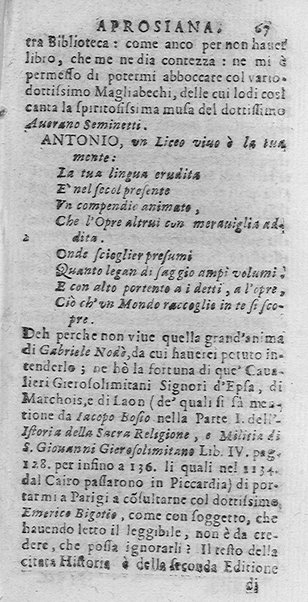 APROSIANA. 67
tra Biblioteca: come anco per non hauer
libro, che me ne dia contezza: ne mi è
permesso di potermi abboccare col vario-
dottissimo Magliabechi, delle cui lodi così
canta la spiritosissima musa del dottissimo
Auerano Seminetti.
ANTONIO, vn Liceo viuo è la tua
mente:
La tua lingua erudita
E' nel secol presente
Vn compendio animato,
Che l'Opre altrui con merauiglia ad-
dita.
Onde scioglier presumi
Quanto legan di saggio ampi volumi:
E con alto portento a i detti, a l'opre,
Ciò ch'vn Mondo raccoglie in te si sco-
pre.
Deh perche non viue quella grand'anima
di Gabriele Nodò, da cui hauerei potuto in-
tenderlo; ne hò la fortuna di que' Caua-
lieri Gierosolimitani Signori d'Epsa, di
Marchois, e di Laon (de' quali si fà men-
tione da Iacopo Bosio nella Parte I. dell'-
Istoria della Sacra Religione, e Militia di
S. Giouanni Gierosolimitano Lib. IV. pag.
128. per infino a 136. li quali nel 1134.
dal Cairo passarono in Piccardia) di por-
tarmi a Parigi a cōsultarne col dottissimo
Emerico Bigotio, come con soggetto, che
hauendo letto il leggibile, non è da cre-
dere, che possa ignorarli? Il testo della
citata Historia è della seconda Editione
di